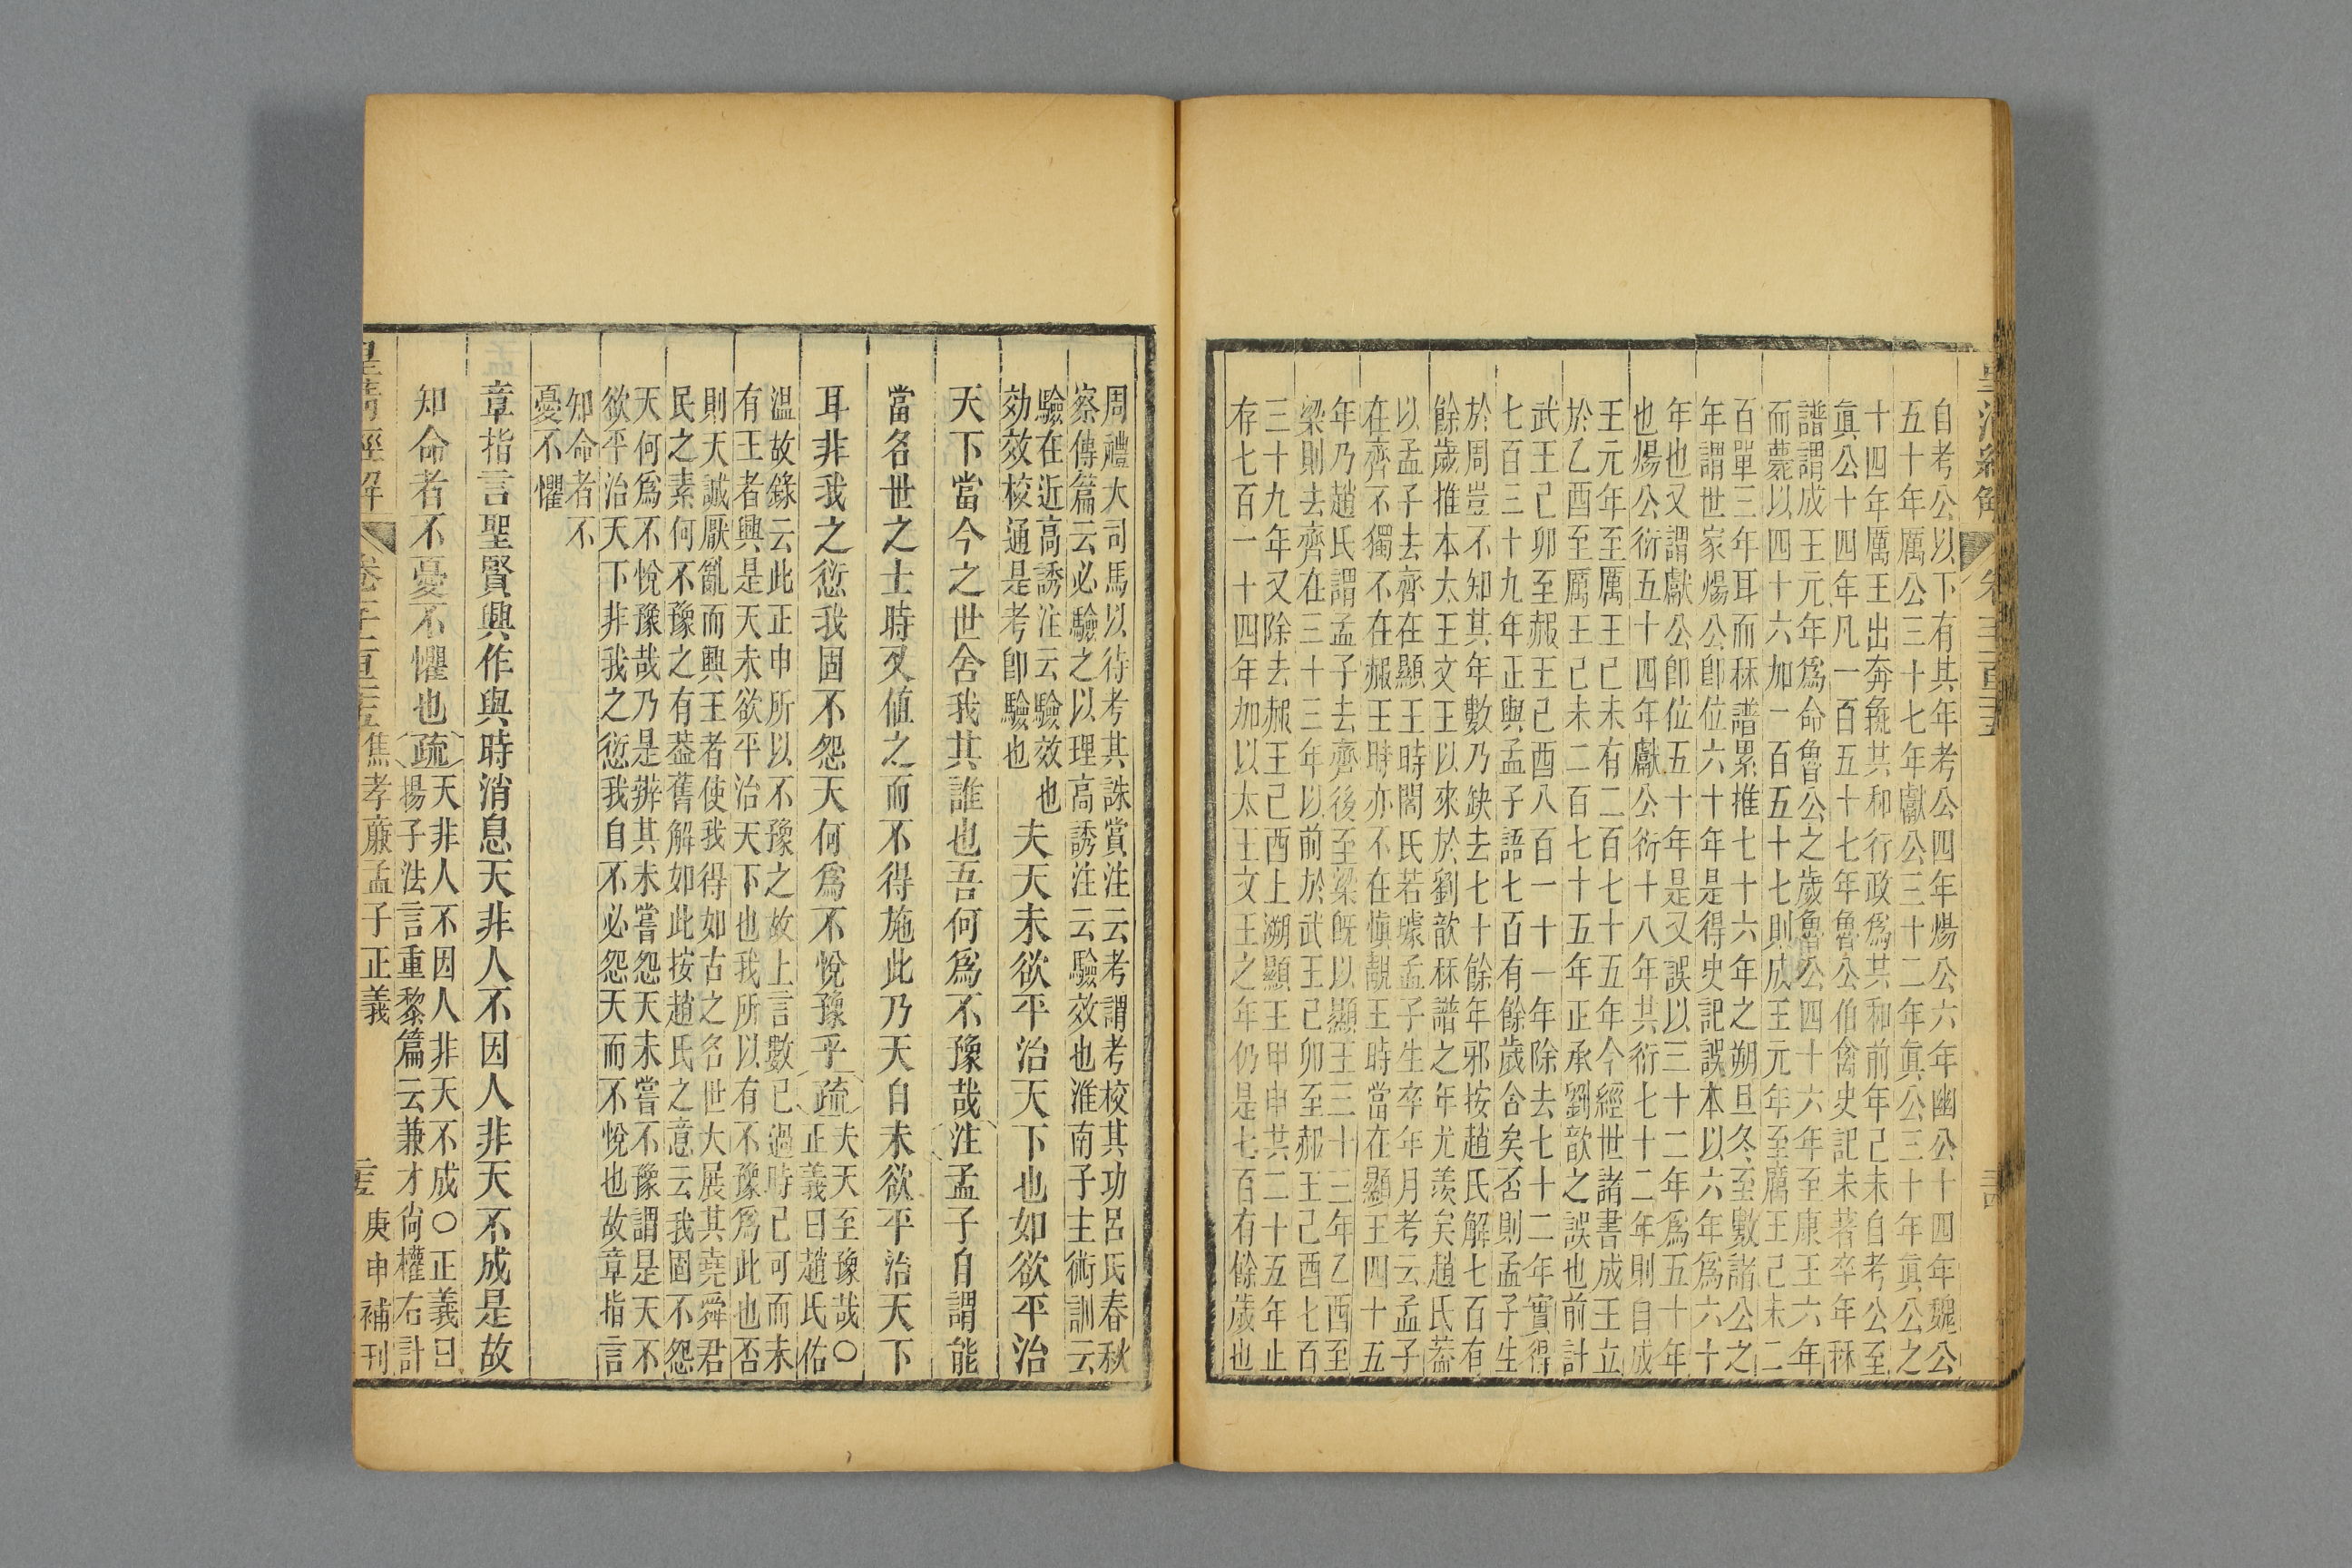 皇淸經解 卷三百五
自考公以下有其年考公四年煬公六年幽公十四年魏公
五十年厲公三十七年獻公三十二年眞公三十年眞公之
十四年厲王出奔彘共和行政爲共和前年己未自考公至
眞公十四年凡一百五十七年魯公伯禽史記未著卒年秝
譜謂成王元年爲命魯公之歲魯公四十六年至康王六年
而薨以四十六加一百五十七則成王元年至厲王己未二
百單三年耳而秝譜累推七十六年之朔旦冬至數諸公之
年謂世家煬公卽位六十年是得史記誤本以六年爲六十
年也又謂獻公卽位五十年是又誤以三十二年爲五十年
也煬公衍五十四年獻公衍十八年共衍七十二年則自成
王元年至厲王己未有二百七十五年今經世諸書成王立
於乙酉至厲王己未二百七十五年正承劉歆之誤也前計
武王己卯至赧王己酉八百一十一年除去七十二年實得
七百三十九年正與孟子語七百有餘歲合矣否則孟子生
於周豈不知其年數乃缺去七十餘年邪按趙氏解七百有
餘歲推本太王文王以來於劉歆秝譜之年尤羨矣趙氏葢
以孟子去齊在顯王時閻氏若璩孟子生卒年月考云孟子
在齊不獨不在赧王時亦不在愼靚王時當在顯王四十五
年乃趙氏謂孟子去齊後至梁旣以顯王三十三年乙酉至
梁則去齊在三十三年以前於武王己卯至赧王己酉七百
三十九年又除去赧王己酉上溯顯王甲申共二十五年止
存七百一十四年加以太王文王之年仍是七百有餘歲也
周禮大司馬以待考其誅賞注云考謂考校其功呂氏春秋
察傳篇云必驗之以理高誘注云驗效也淮南子主術訓云
驗在近高誘注云驗效也
効效校通是考卽驗也
夫天未欲平治天下也如欲平治
天下當今之世舍我其誰也吾何爲不豫哉注孟子自謂能
當名世之士時又値之而不得施此乃天自未欲平治天下
耳非我之愆我固不怨天何爲不悅豫乎疏夫天至豫哉○
正義曰趙氏佑
溫故錄云此正申所以不豫之故上言數已過時已可而未
有王者興是天未欲平治天下也我所以有不豫爲此也否
則天誠厭亂而興王者使我得如古之名世大展其堯舜君
民之素何不豫之有葢舊解如此按趙氏之意云我固不怨
天何爲不悅豫哉乃是辨其未嘗怨天未嘗不豫謂是天不
欲平治天下非我之愆我自不必怨天而不悅也故章指言
知命者不
憂不懼
章指言聖賢興作與時消息天非人不因人非天不成是故
知命者不憂不懼也疏天非人不因人非天不成○正義曰
揚子法言重黎篇云兼才尙權右計
皇淸經解 卷三百五 焦孝廉孟子正義 庚申補刊